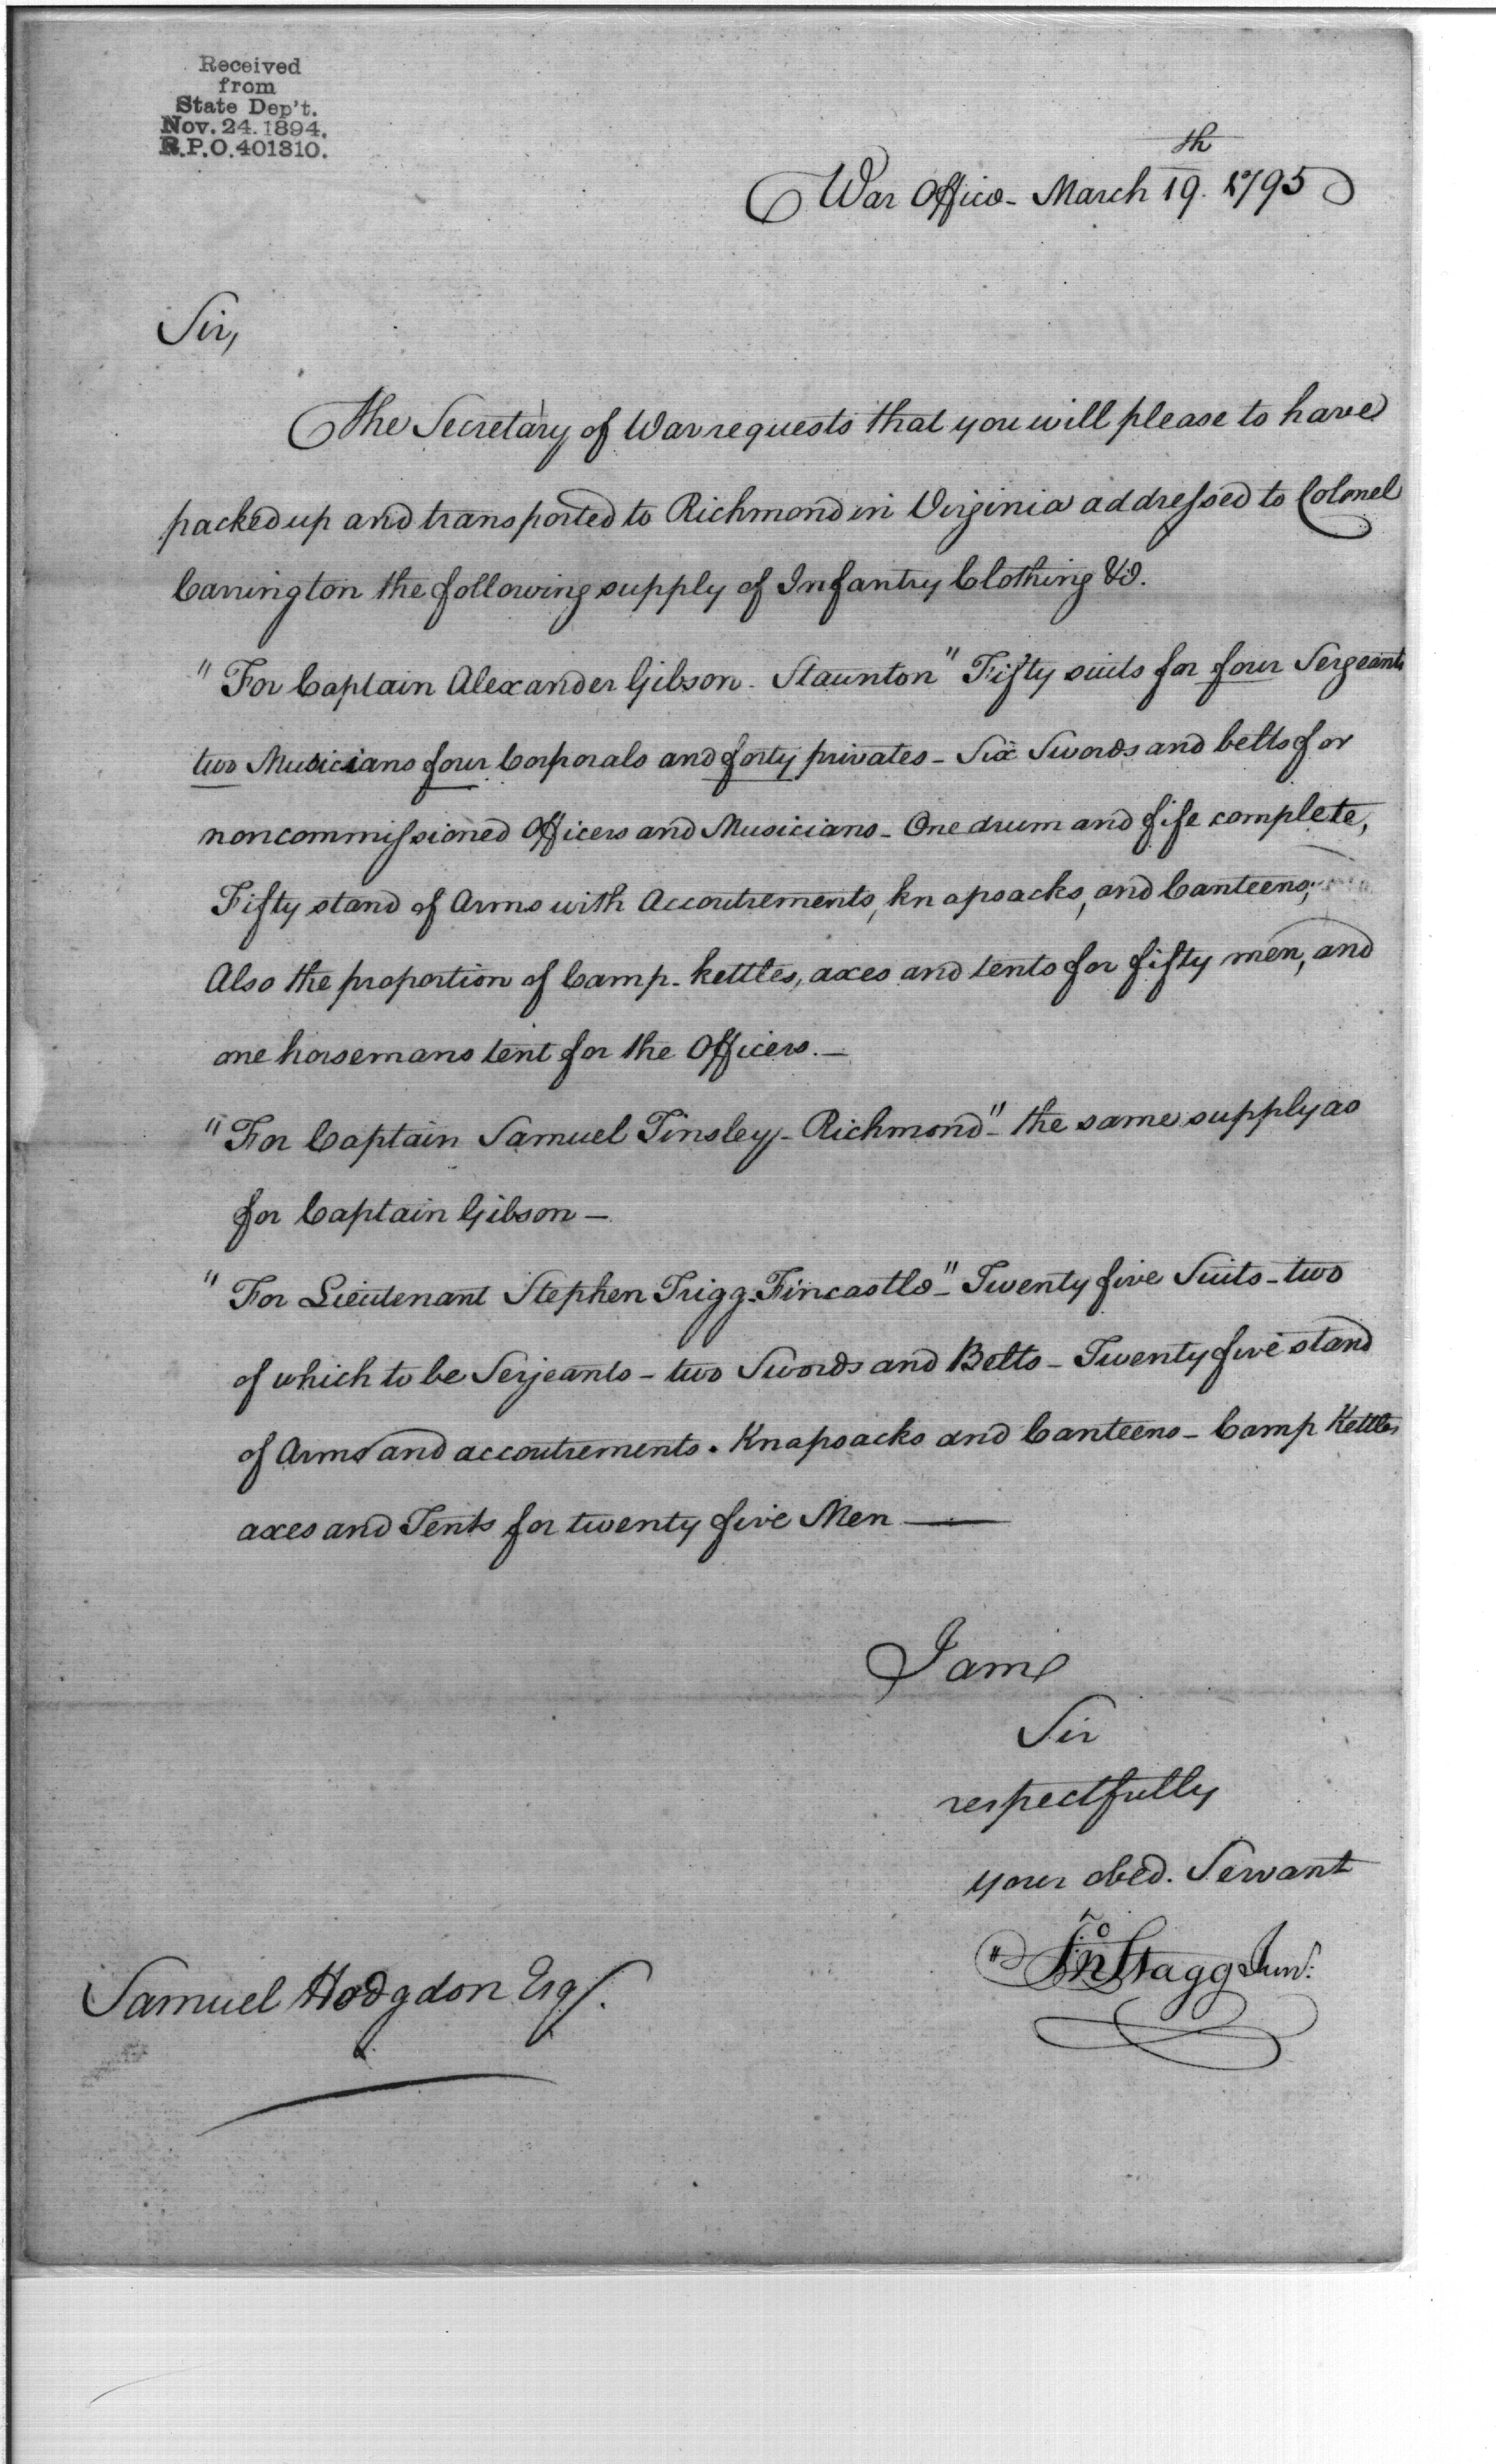 Received
from
State Dep't.
Nov. 24. 1894.
R.P.O. 401810.
War Office - March 19th. 1795
Sir,
The Secretary of War requests that you will please to have
packed up and transported to Richmond in Virginia addressed to Colonel
Carrington the following supply of Infantry Clothing &c.
"For Captain Alexander Gibson - Staunton" Fifty suits for four Sergeants
two Musicians four Corporals and forty privates - Six Swords and belts for
noncommissioned Officers and Musicians - One drum and fife complete,
Fifty stand of Arms with Accoutrements, knapsacks, and Canteens;
Also the proportion of Camp-kettles, axes and tents for fifty men, and
one horsemans tent for the Officers. -
"For Captain Samuel Tinsley - Richmond" - the same supply as
for Captain Gibson -
"For Lieutenant Stephen Trigg - Fincastle" - Twenty five Suits - two
of which to be Serjeants - two Swords and Belts - Twenty five stand
of Arms and accoutrements. Knapsacks and Canteens - Camp Kettles
axes and Tents for twenty five Men -
I am
Sir
respectfully
your obed. Servant
Jno Stagg Junr.
Samuel Hodgdon Esqr.